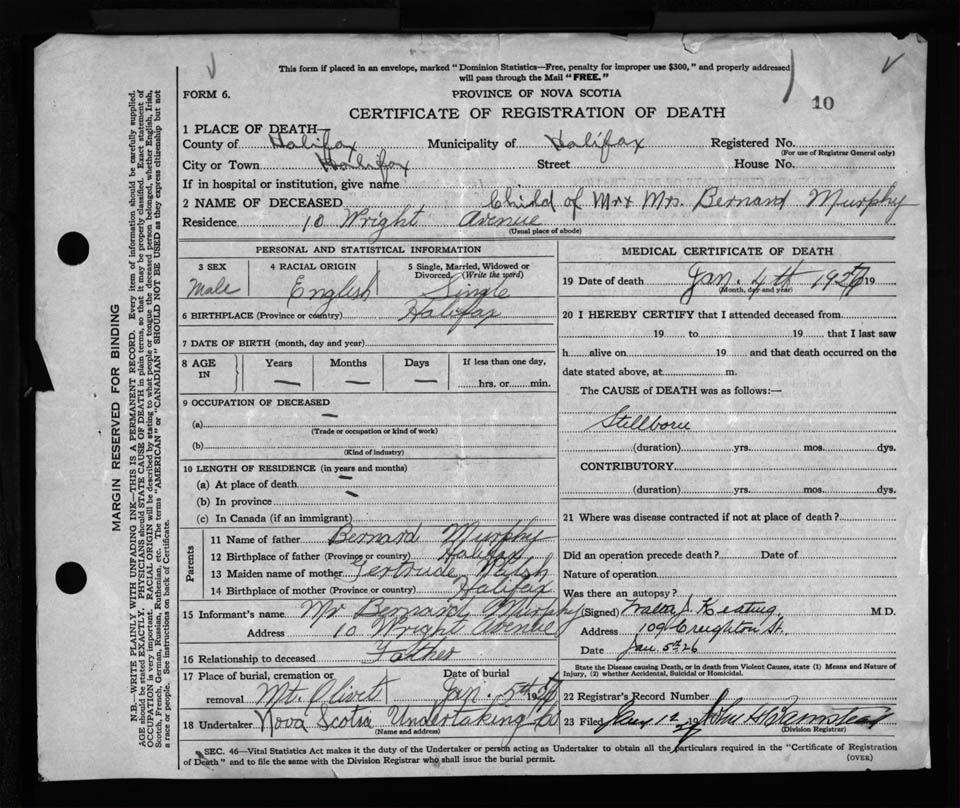 This form if placed in an envelope, marked "Dominion Statistics—Free, penalty for improper use $300," and properly addressed
will pass through the Mail "FREE."
FORM 6. PROVINCE OF NOVA SCOTIA 10
CERTIFICATE OF REGISTRATION OF DEATH
1 PLACE OF DEATH—
County of Halifax Municipality of Halifax Registered No.
(For use of Registrar General only)
City or Town Halifax Street House No.
If in hospital or institution, give name
2 NAME OF DECEASED Child of Mr & Mrs. Bernard Murphy
Residence 10 Wright Avenue
(Usual place of abode)
PERSONAL AND STATISTICAL INFORMATION
3 SEX 4 RACIAL ORIGIN 5 Single, Married, Widowed or
Divorced, (Write the word)
Male English Single
6 BIRTHPLACE (Province or country) Halifax
7 DATE OF BIRTH (month, day and year)
8 AGE IN Years Months Days If less than one day,
— — — hrs. or min.
9 OCCUPATION OF DECEASED —
(a)
(Trade or occupation or kind of work)
(b)
(Kind of industry)
10 LENGTH OF RESIDENCE (in years and months)
(a) At place of death —
(b) In province —
(c) In Canada (if an immigrant)
Parents
11 Name of father Bernard Murphy
12 Birthplace of father (Province or country) Halifax
13 Maiden name of mother Gertrude Walsh
14 Birthplace of mother (Province or country) Halifax
15 Informant's name Mr Bernard Murphy
Address 10 Wright Avenue
16 Relationship to deceased Father
17 Place of burial, cremation or Date of burial
removal Mt. Olivet Jan. 5th 1926
18 Undertaker Nova Scotia Undertaking Co
(Name and address)
MEDICAL CERTIFICATE OF DEATH
19 Date of death Jan. 4th 1926 19
(Month, day and year)
20 I HEREBY CERTIFY that I attended deceased from
19 to 19 that I last saw
h alive on 19 and that death occurred on the
date stated above, at m.
The CAUSE of DEATH was as follows:—
Stillborn
(duration) yrs. mos. dys.
CONTRIBUTORY
(duration) yrs. mos. dys.
21 Where was disease contracted if not at place of death?
Did an operation precede death? Date of
Nature of operation
Was there an autopsy?
(Signed) Keating M.D.
Address 109 Creighton St.
Date Jan. 5th 26
State the Disease causing Death, or in death from Violent Causes, state (1) Means and Nature of
Injury, (2) whether Accidental, Suicidal or Homicidal.
22 Registrar's Record Number
23 Filed 19 John
(Division Registrar)
SEC. 46—Vital Statistics Act makes it the duty of the Undertaker or person acting as Undertaker to obtain all the particulars required in the "Certificate of Registration
of Death" and to file the same with the Division Registrar who shall issue the burial permit. (OVER)
MARGIN RESERVED FOR BINDING
N.B.—WRITE PLAINLY, WITH UNFADING INK—THIS IS A PERMANENT RECORD. Every item of information should be carefully supplied.
AGE should be stated EXACTLY. PHYSICIANS should STATE CAUSE OF DEATH in plain terms, so that it may be properly classified. Exact statement of
OCCUPATION is very important. RACIAL ORIGIN will be described by stating to what people or tongue the deceased person belonged, whether English, Irish,
Scotch, French, German, Russian, Ruthenian, etc. The terms "AMERICAN" or "CANADIAN" SHOULD NOT BE USED as they express citizenship but not
a race or people. See instructions on back of Certificate.